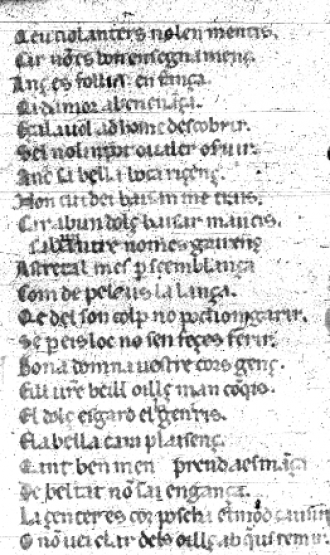 Qeu uolanters nolen mentis.
Car nōes bon ensegnamenç
Anç es follia en fança.
Qi damor abenenāça.
Ecal auol ad home descobrir.
Sel nolinpot oualer oseruir.
Anc sa bella boca riçenç.
Non cuidei baisan me trais.
Car abun dolç baisar maucis.
Sabautre nomes garenç
Atretal mes p semblança
Com de peleus la lança.
Qe del son colp no podiomgarir.
Se p eis loc no sen feçes ferir.
Bona domna uostre cors genç.
Eill ur̄e beill oillç man cōqis.
El dolç esgard el genris.
Ela bella cara plaisenç.
Cant ben men prend aesmāça
De beltat nō sai engança.
La gencer es com poscha el mōd causir
O nō uei clar dels oillç ab qui remir.